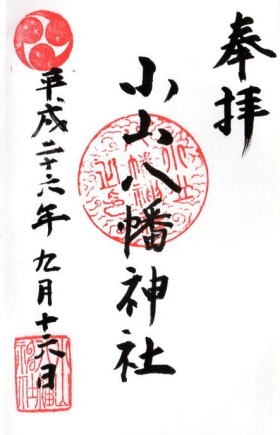 奉拝
小山八幡神社
平成二十六年九月十六日